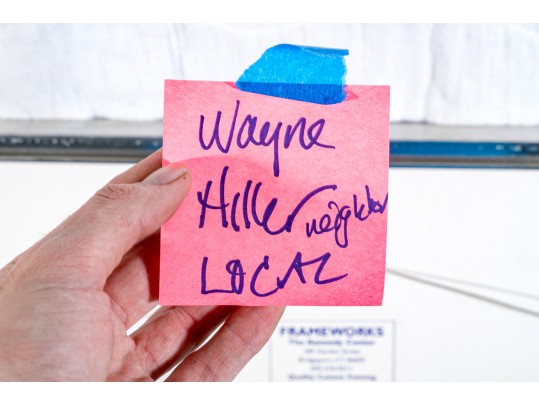 Wayne
Hiller neighbor
LOCAL
FRAMEWORKS
The Kennedy Center
Quality Custom Framing